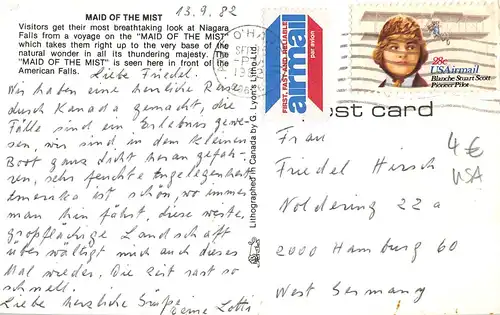 MAID OF THE MIST
13.9.82
Visitors get their most breathtaking look at Niagara
Falls from a voyage on the "MAID OF THE MIST"
which takes them right up to the very base of the
natural wonder in all its thundering majesty. The
"MAID OF THE MIST" is seen here in front of the
American Falls.
Liebe Friedel.
Wir haben eine herrliche Reise
durch Kanada gemacht, die
Fälle sind ein Erlebnis gewe-
sen, wir sind in dem kleinen
Boot ganz dicht heran gefah-
ren, sehr feuchte Angelegenheit
Amerika ist schön, wo immer
man hin fährt, diese weite,
großflächige Landschaft
überwältigt mich auch dieses
Mal wieder. Die Zeit rast so
schnell.
Liebe herzliche Grüße
Deine Lotti
Lithographed in Canada by G. Lyon's Litho Ltd.
O'HA
SEP
PM
FIRST, FAST, AND RELIABLE
airmail
par avion
28c
USAirmail
Blanche Stuart Scott
Pioneer Pilot
post card
Frau
Friedel Hirsch
Noldering 22a
2000 Hamburg 60
West Germany
4€
USA